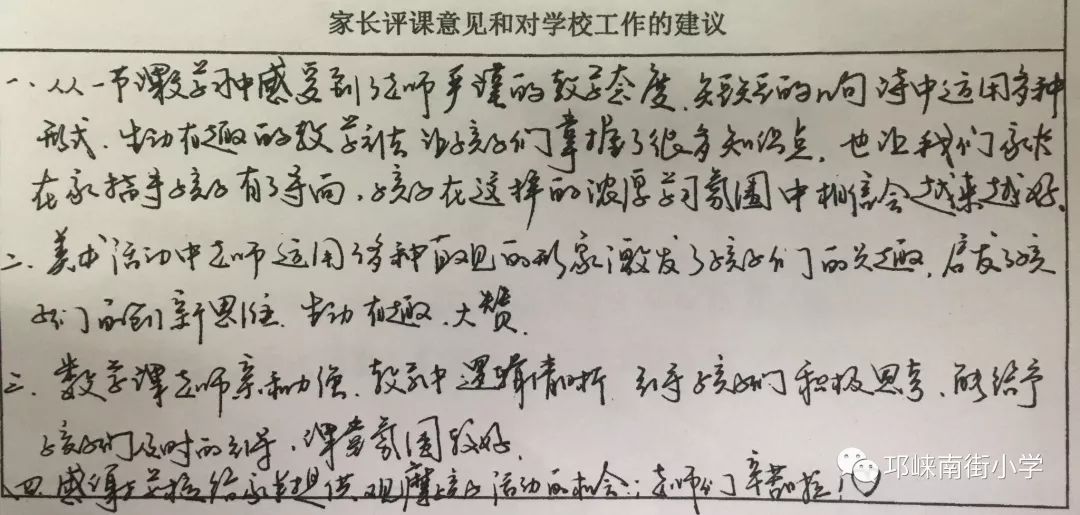 家长评课意见和对学校工作的建议
一、从一节课教学中感受到了老师严谨的教学态度、短短的几句诗中运用多种
形式、生动有趣的教学方法让孩子们掌握了很多知识点，也让我们家长
在家指导孩子有了导向，孩子在这样的浓厚学习氛围中相信会越来越好。
二、美术活动中老师运用了多种直观的形象激发了孩子们的兴趣，启发了孩
子们的创新思维、生动有趣、大赞。
三、数学课老师亲和力强、教学中逻辑清晰 引导孩子们积极思考、能给予
孩子们及时的引导，课堂氛围较好。
四、感谢学校给家长提供观摩孩子活动的机会；老师们辛苦啦！
邛崃南街小学